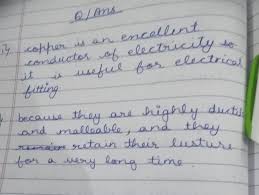 Q/Ans
i) copper is an excellent
conductor of electricity so
it is useful for electrical
fitting
because they are highly ducti
and malleable, and they
retain their lusture
for a very long time.